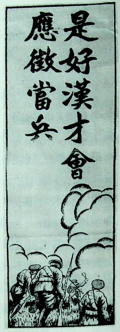 是好漢才會
應徵當兵